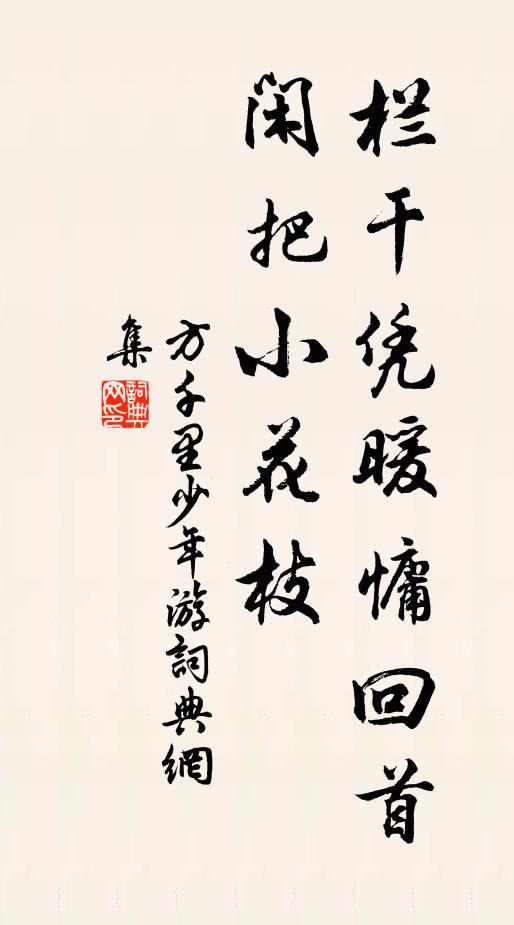 栏干凭暖慵回首
闲把小花枝
方千里少年游詞典網
集
詞典网印